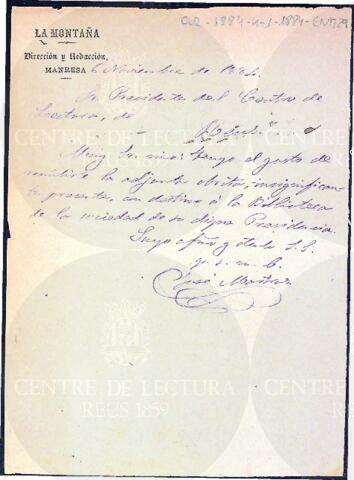 CLR-1884-4-1-1884-ENT129
LA MONTAÑA
Dirección y Redacción,
MANRESA 6 Noviembre de 1884.
Sr. Presidente del Centro de
Lectura, de
Reus
Muy Sr. mio: Tengo el gusto de
remitirle la adjunta obrita, insignifican-
te presente, con destino á la Biblioteca
de la sociedad de su digna Presidencia.
Suyo afmo y S. S.
q. s. m. b.
José
CENTRE DE LECTURA
REUS 1859